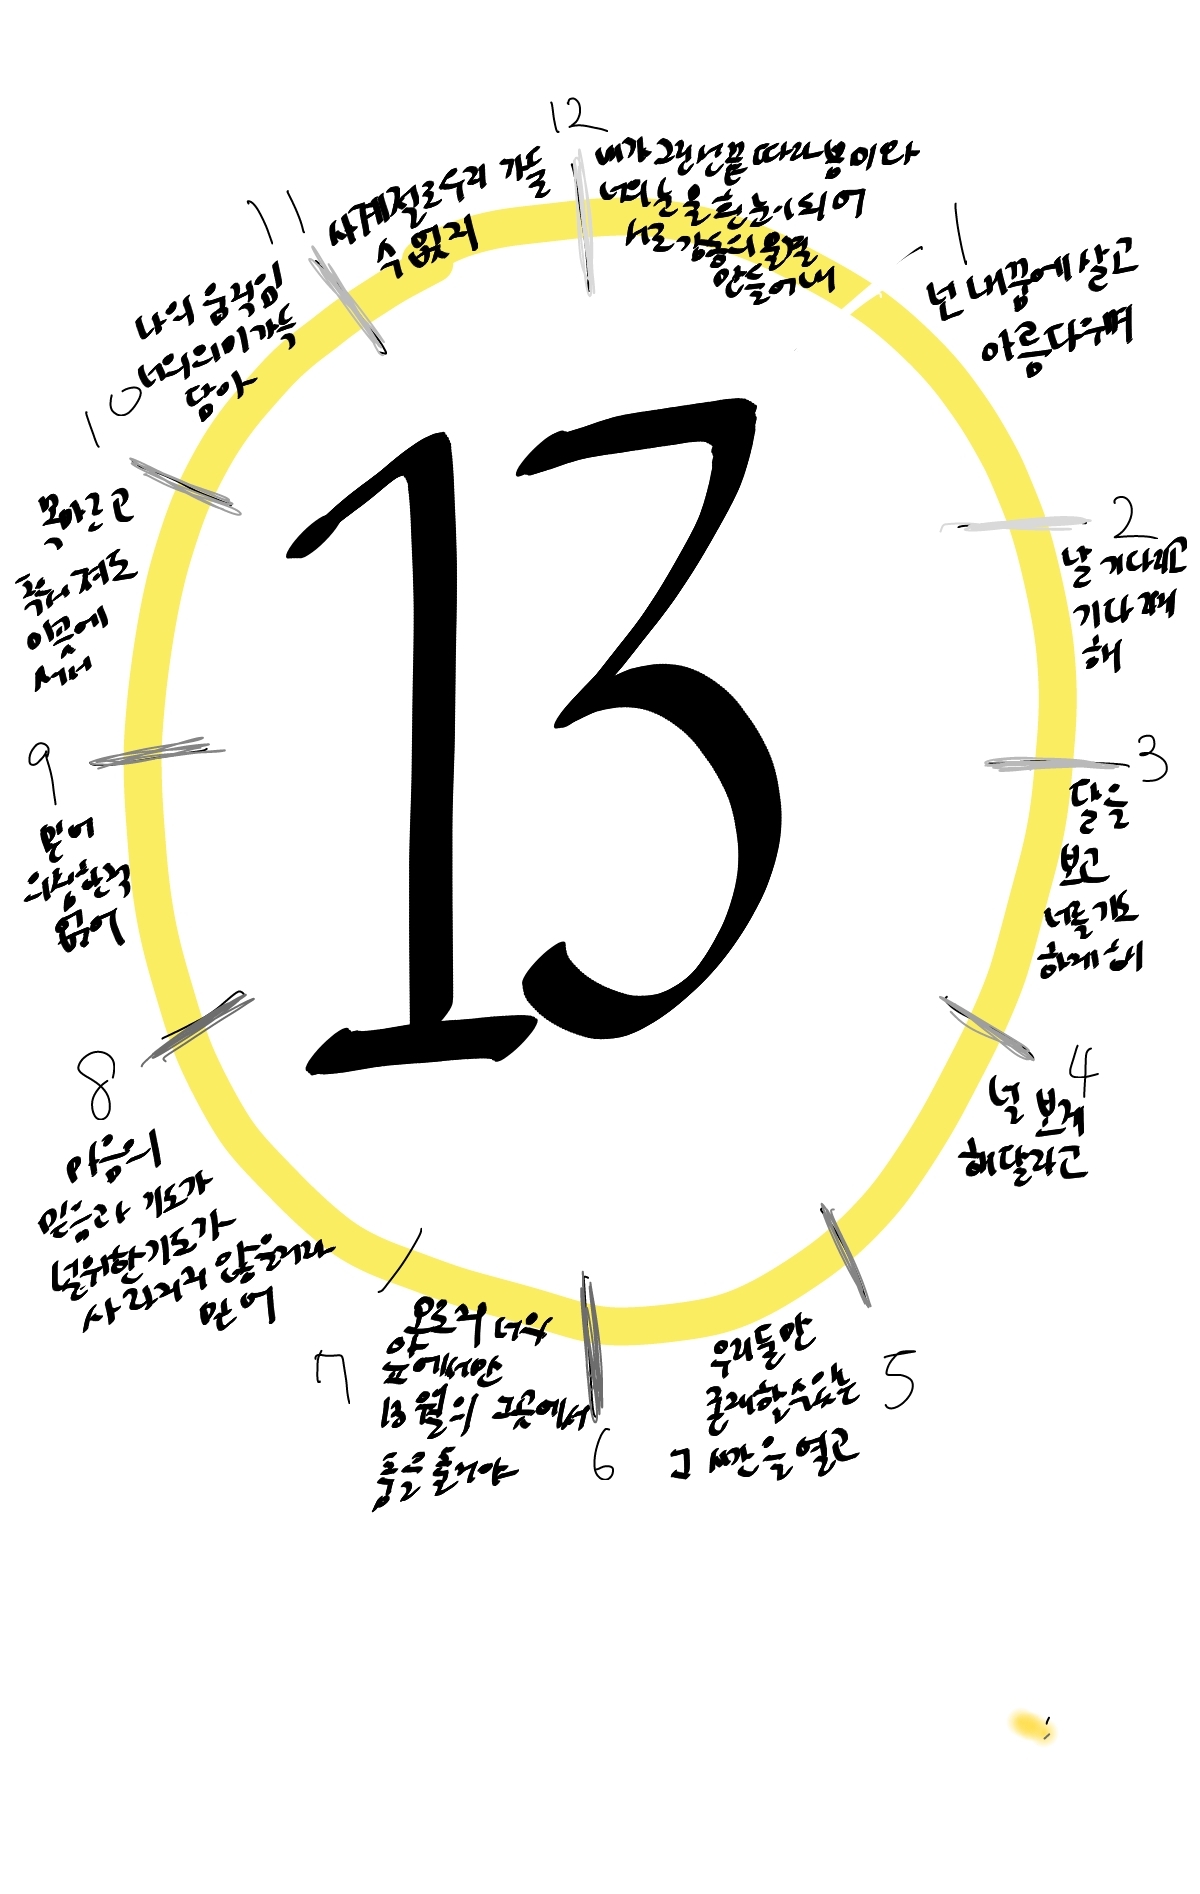 12
내가 그린 선 끝 따라 봄이 와
너의 눈을 흰 눈이 되어
서로 감동의 물결
만들어 내
1
넌 내 꿈에 살고
아름다우며
2
날 기다리고
기다
해
3
달을
보고
너를 기도
하게 해
4
널 보게
해달라고
5
우리들만
존재할 수 있는
그 시간을 열고
6
오로지 너의
앞에서만
13월의 그곳에서
춤을 출거야
7
8
마음의
믿음과 기도가
널 위한 기도가
사라지지 않을거라
믿어
9
믿어
의심한 적
없어
10
목마르고
이곳에
서서
11
나의 움직임
너의 의미 가득
담아
사계절로 우리 가둘
수 없지
13